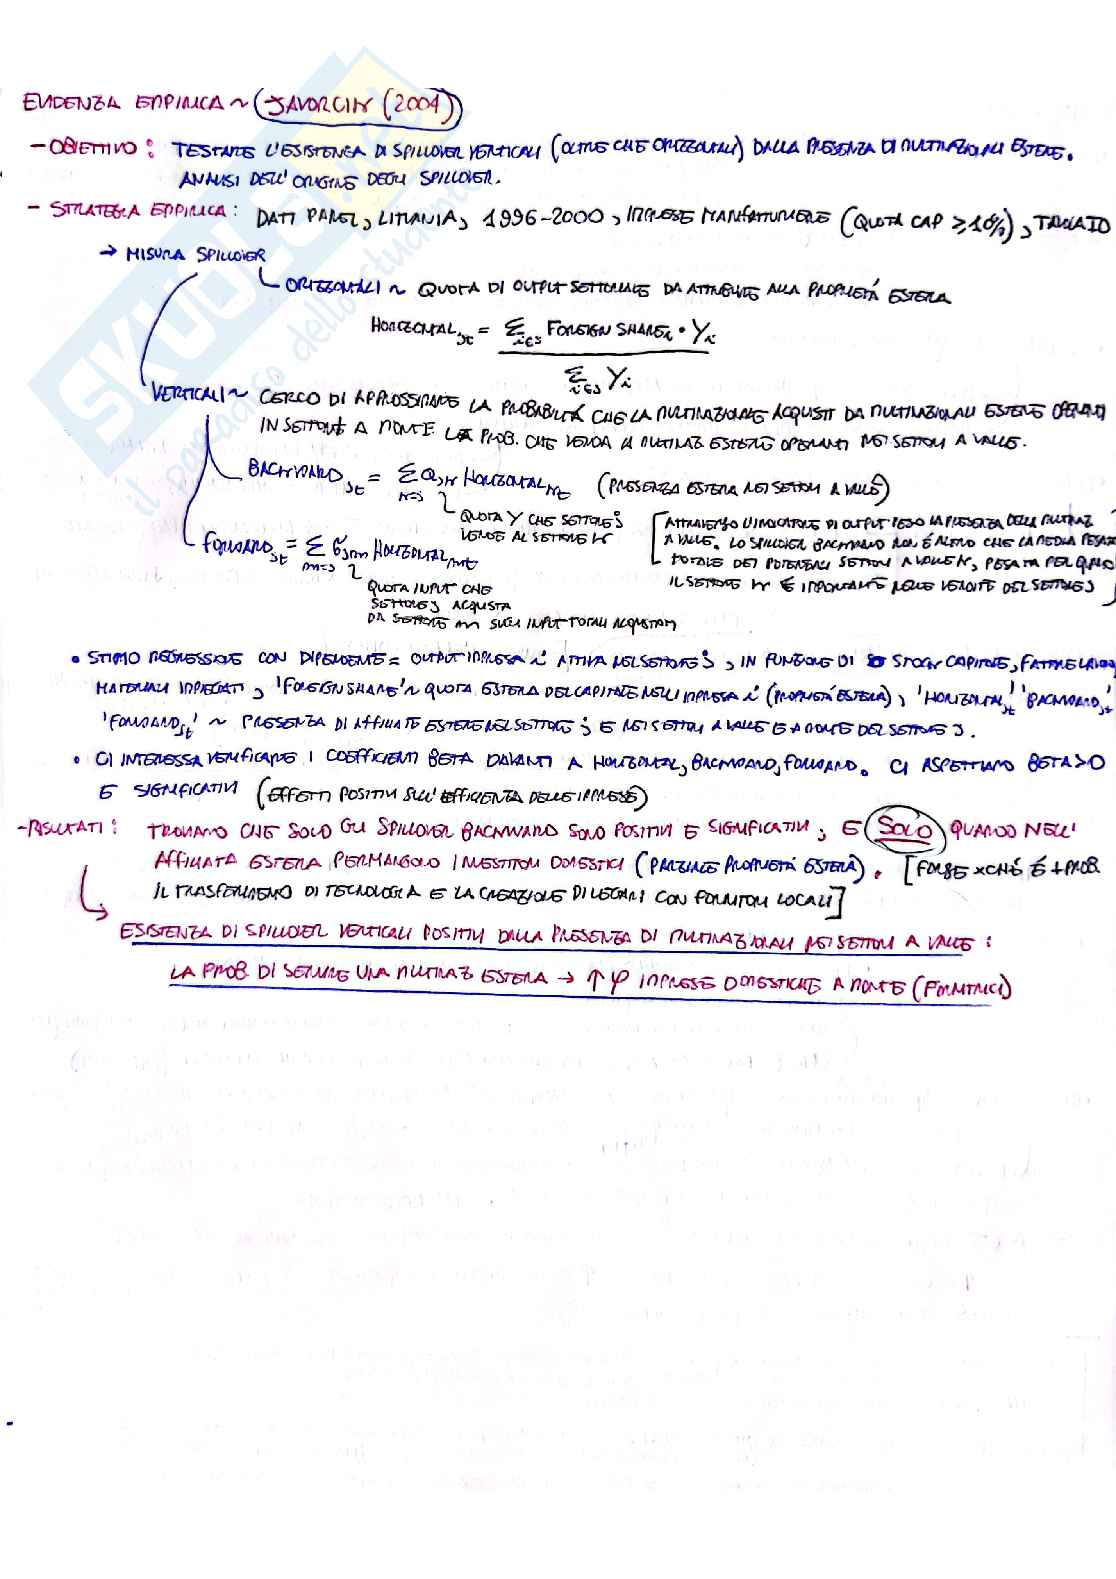 EVIDENZA EMPIRICA ~ JAVORCIK (2004)
- OBIETTIVO: TESTARE L'ESISTENZA DI SPILLOVER VERTICALI (OLTRE CHE ORIZZONTALI) DALLA PRESENZA DI MULTINAZIONALI ESTERE.
ANALISI DELL'ORIGINE DEGLI SPILLOVER.
- STRATEGIA EMPIRICA: DATI PANEL, LITUANIA, 1996-2000, IMPRESE MANIFATTURIERE (QUOTA CAP ≥10%),
→ MISURA SPILLOVER
ORIZZONTALI ~ QUOTA DI OUTPUT SETTORIALE DA ATTRIBUIRE ALLA PROPRIETÁ ESTERA
HORIZONTAL_jt = Σ_i∈j FOREIGN SHARE_i • Y_i
Σ_i∈j Y_i
VERTICALI ~ CERCO DI APPROSSIMARE LA PROBABILITÀ CHE LA MULTINAZIONALE ACQUISTI DA MULTINAZIONALI ESTERE OPERANTI
IN SETTORI A MONTE E LA PROB. CHE VENDA A MULTINAZ ESTERE OPERANTI NEI SETTORI A VALLE.
BACKWARD_jt = Σ α_jk HORIZONTAL_kt (PRESENZA ESTERA NEI SETTORI A VALLE)
QUOTA Y CHE SETTORE j
VENDE AL SETTORE K
[ATTRAVERSO L'INDICATORE DI OUTPUT PESO LA PRESENZA DELLA MULTINAZ
A VALLE. LO SPILLOVER BACKWARD NON É ALTRO CHE LA MEDIA PESATA
TOTALE DEI POTENZIALI SETTORI A VALLE K, PESATA PER QUANTO
IL SETTORE K É IMPORTANTE NELLE VENDITE DEL SETTORE j]
FORWARD_jt = Σ σ_jm HORIZONTAL_mt
QUOTA INPUT CHE
SETTORE j ACQUISTA
DA SETTORE m SUGLI INPUT TOTALI ACQUISTATI
• STIMO REGRESSIONE CON DIPENDENTE = OUTPUT IMPRESA i ATTIVA NEL SETTORE j, IN FUNZIONE DI STOCK CAPITALE, FATTORE LAVORO,
MATERIALI IMPIEGATI, 'FOREIGN SHARE' ~ QUOTA ESTERA DEL CAPITALE NELL'IMPRESA i (PROPRIETÁ ESTERA), 'HORIZONTAL_jt' 'BACKWARD_jt'
'FORWARD_jt' ~ PRESENZA DI AFFILIATE ESTERE NEL SETTORE j E NEI SETTORI A VALLE E A MONTE DEL SETTORE j.
• CI INTERESSA VERIFICARE I COEFFICIENTI BETA DAVANTI A HORIZONTAL, BACKWARD, FORWARD. CI ASPETTIAMO BETA>0
E SIGNIFICATIVI (EFFETTI POSITIVI SULL'EFFICIENZA DELLE IMPRESE)
- RISULTATI: TROVIAMO CHE SOLO GLI SPILLOVER BACKWARD SONO POSITIVI E SIGNIFICATIVI, E SOLO QUANDO NELL'
AFFILIATA ESTERA PERMANGONO INVESTITORI DOMESTICI (PARZIALE PROPRIETÁ ESTERA). [FORSE XCHÉ É +PROB.
IL TRASFERIMENTO DI TECNOLOGIA E LA CREAZIONE DI LEGAMI CON FORNITORI LOCALI]
ESISTENZA DI SPILLOVER VERTICALI POSITIVI DALLA PRESENZA DI MULTINAZIONALI NEI SETTORI A VALLE:
LA PROB. DI SERVIRE UNA MULTINAZ ESTERA → ↑ φ IMPRESE DOMESTICHE A MONTE (FORNITRICI)
SKUOLA.net
il paradiso dello studente